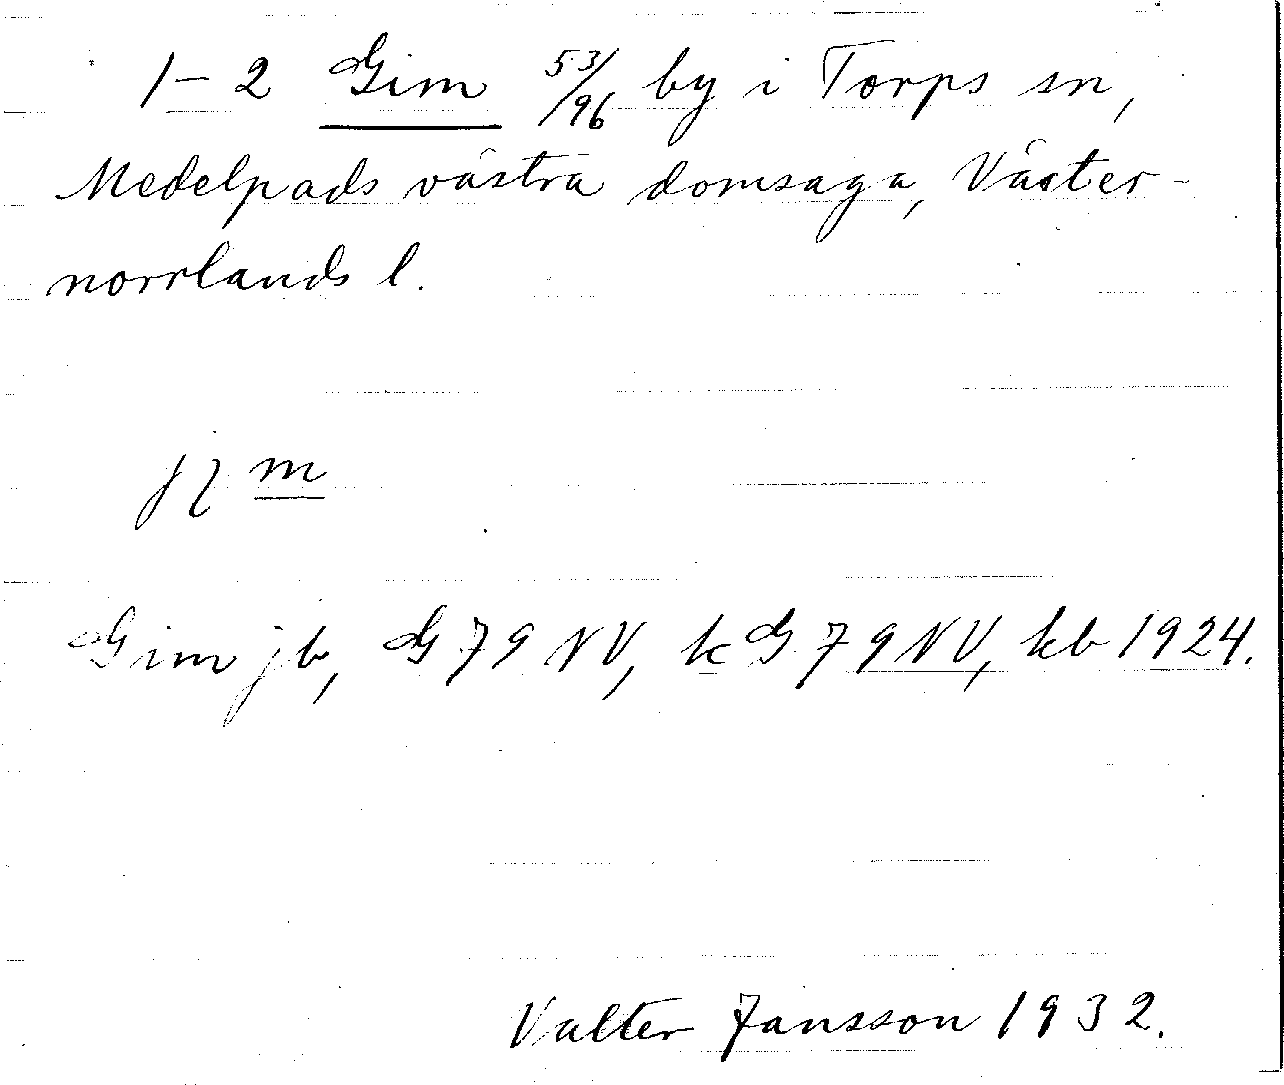 1-2 Gim 53/96 by i Torps sn,
Medelpads västra domsaga, Väster-
norrlands l.
m
Gim jb, G 79 NV, k G 79 NV, kb 1924.
Valter Jansson 1932.